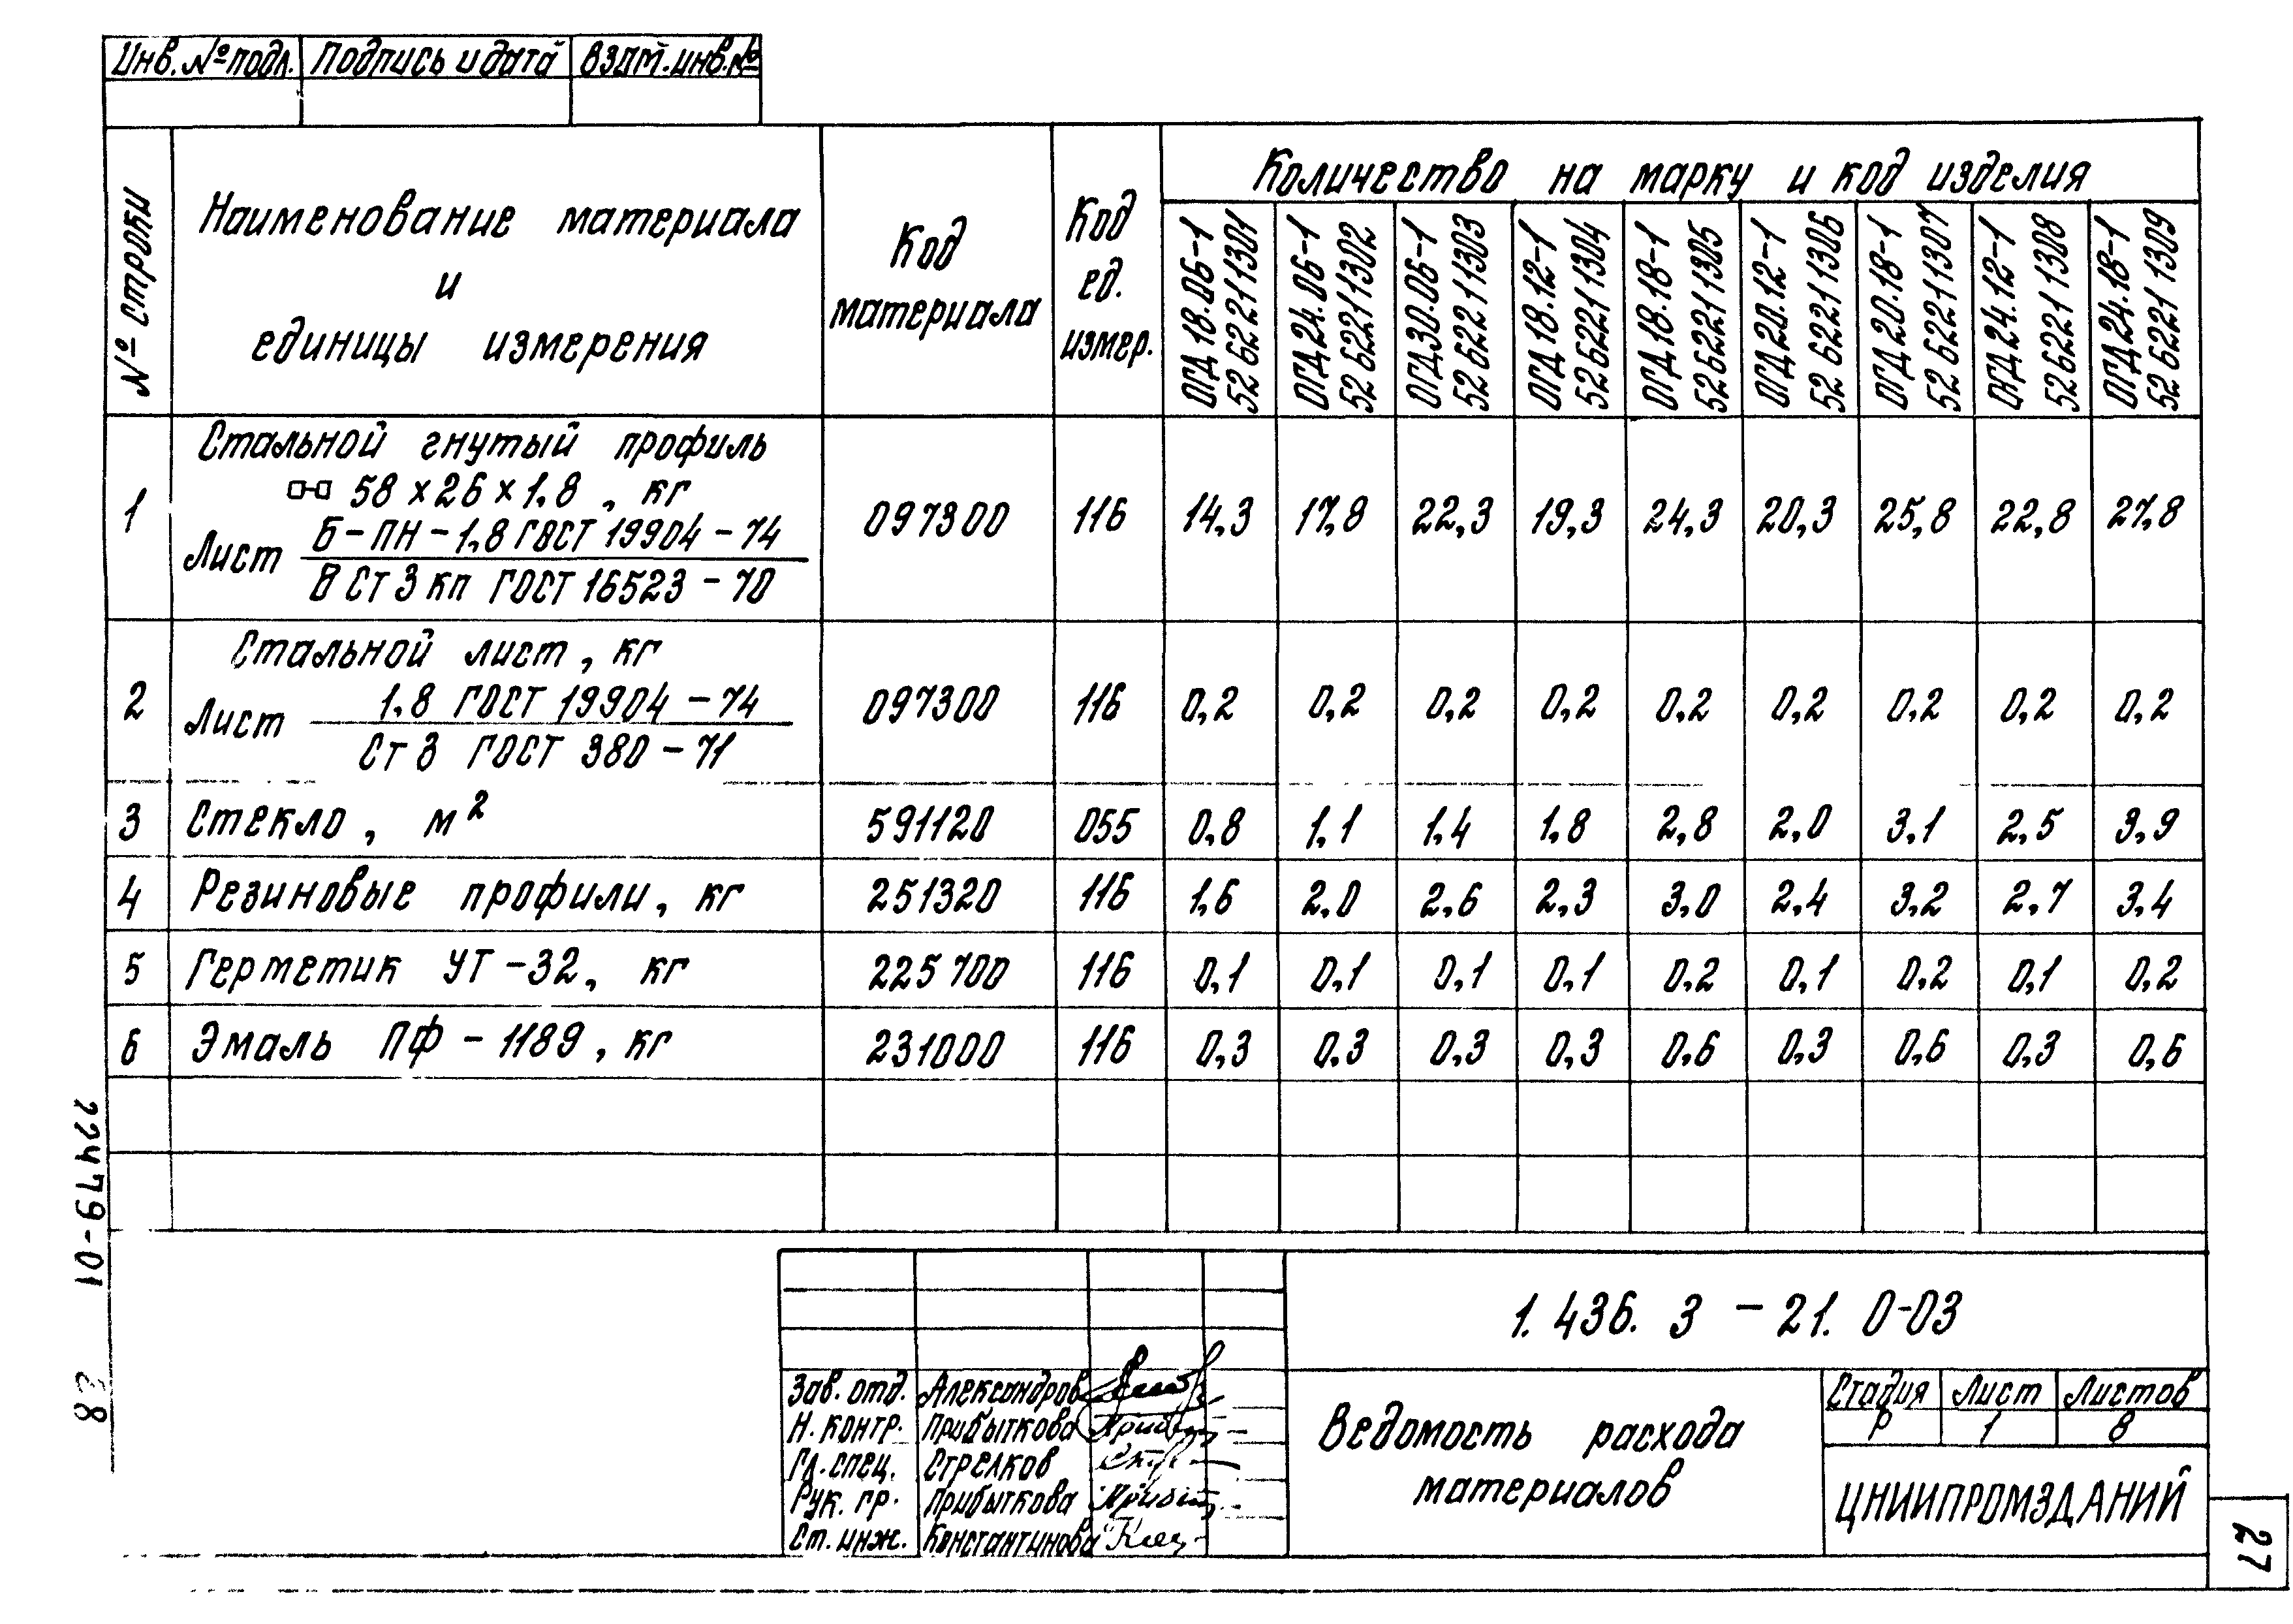 Инв. № подл. Подпись и дата Взам. инв. №
№ строки
Наименование материала
и
единицы измерения
Код
материала
Код
ед.
измер.
Количество на марку и код изделия
ОГД 18.06-1
52 6221 1301
ОГД 24.06-1
52 6221 1302
ОГД 30.06-1
52 6221 1303
ОГД 18.12-1
52 6221 1304
ОГД 18.18-1
52 6221 1305
ОГД 20.12-1
52 6221 1306
ОГД 20.18-1
52 6221 1307
ОГД 24.12-1
52 6221 1308
ОГД 24.18-1
52 6221 1309
Стальной гнутый профиль
58 × 26 × 1.8 , кг
1 Лист Б-ПН-1.8 ГОСТ 19904-74 097300 116 14,3 17,8 22,3 19,3 24,3 20,3 25,8 22,8 27,8
В Ст 3 кп ГОСТ 16523-70
Стальной лист, кг
2 Лист 1.8 ГОСТ 19904-74 097300 116 0,2 0,2 0,2 0,2 0,2 0,2 0,2 0,2 0,2
Ст 3 ГОСТ 380-71
3 Стекло, м² 591120 055 0,8 1,1 1,4 1,8 2,8 2,0 3,1 2,5 3,9
4 Резиновые профили, кг 251320 116 1,6 2,0 2,6 2,3 3,0 2,4 3,2 2,7 3,4
5 Герметик УТ-32, кг 225700 116 0,1 0,1 0,1 0,1 0,2 0,1 0,2 0,1 0,2
6 Эмаль ПФ-1189, кг 231000 116 0,3 0,3 0,3 0,3 0,6 0,3 0,6 0,3 0,6
22479-01 28
1.436.3-21.0-03
Зав. отд. Александров
Н. контр. Прибыткова
Гл. спец. Стрелков
Рук. гр. Прибыткова
Ст. инж. Константинова
Ведомость расхода
материалов
Стадия Лист Листов
Р 1 8
ЦНИИПРОМЗДАНИЙ
27